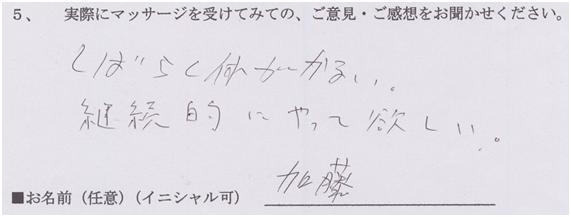 5、 実際にマッサージを受けてみての、ご意見・ご感想をお聞かせください。
しばらく体がかるい。
継続的にやって欲しい。
■お名前（任意）（イニシャル可） 加藤